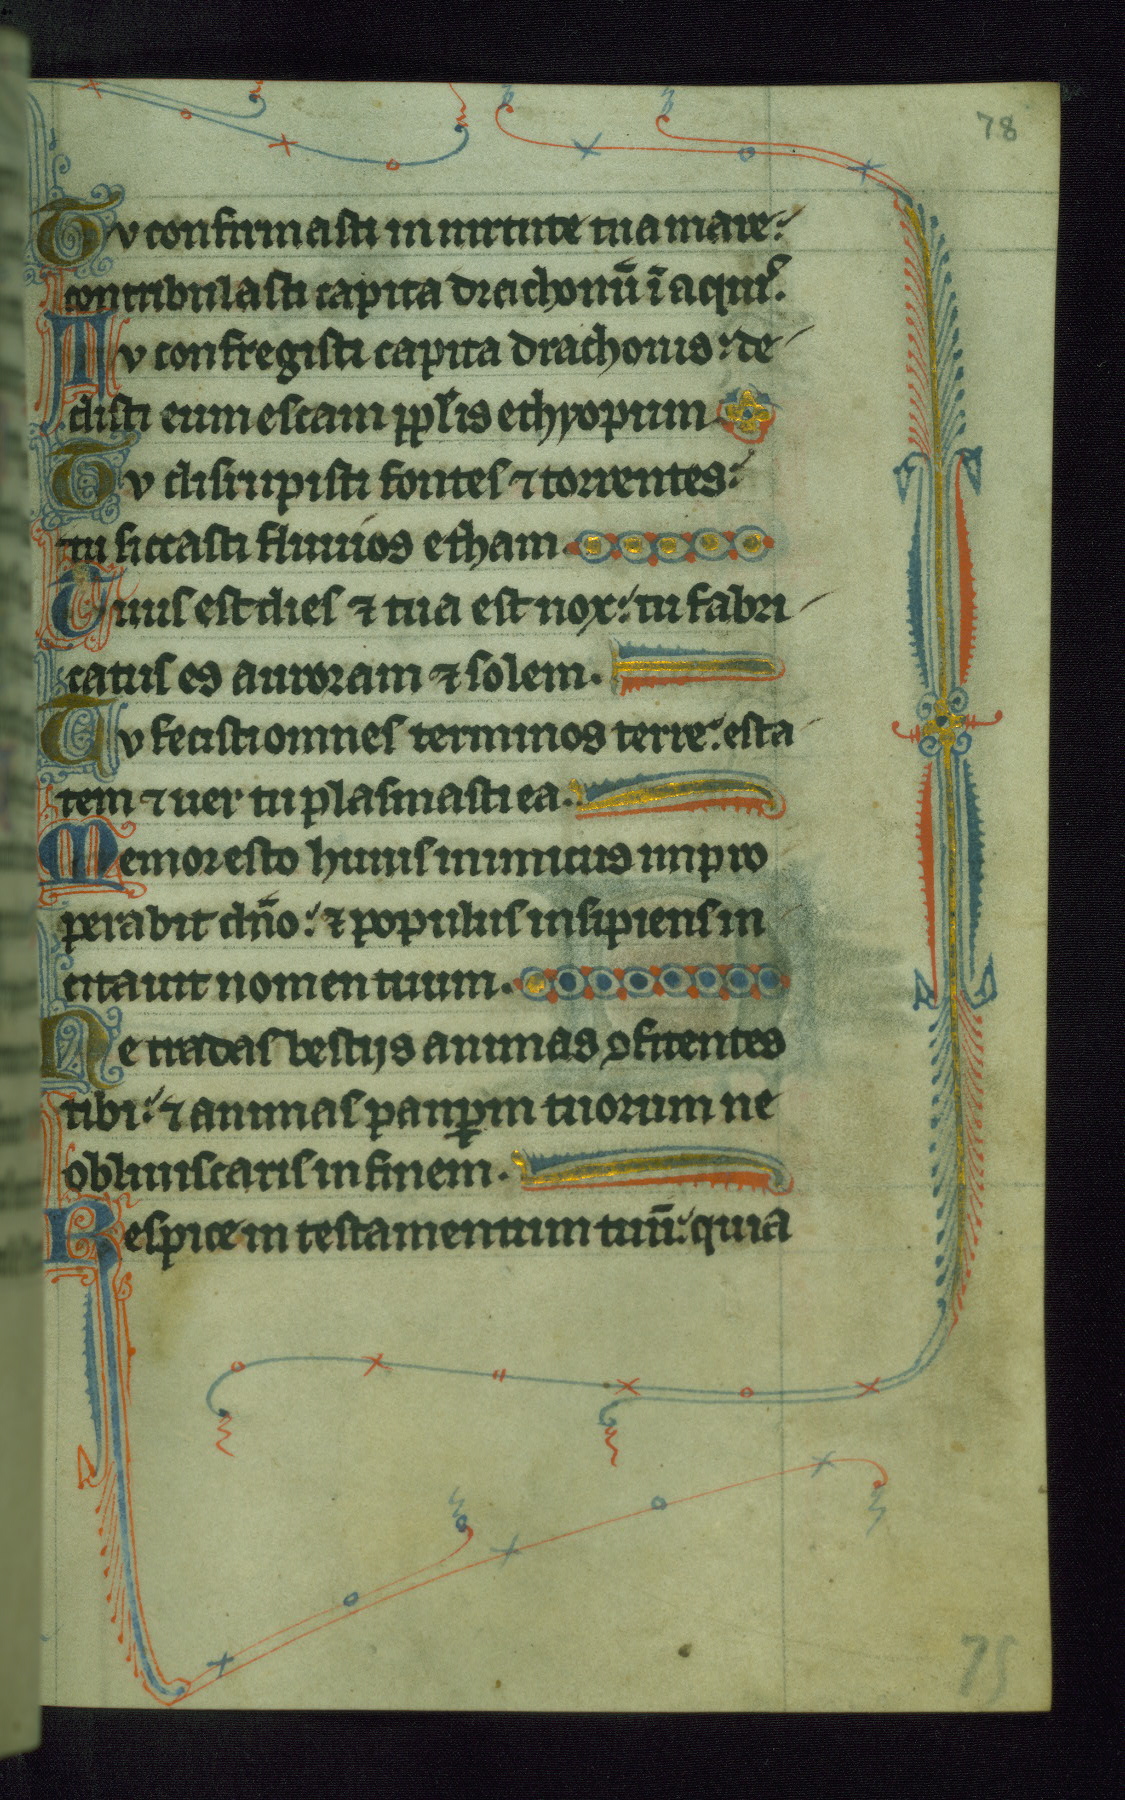 78
Tv confirmasti in uirtute tua mare:
contribulasti capita drachonū ī aquis.
Tv confregisti capita drachonis: de
disti eum escam ppl'is ethyopum
Tv disrupisti fontes ⁊ torrentes:
tu siccasti fluuios etham.
Tuus est dies ⁊ tua est nox: tu fabri
catus es auroram ⁊ solem.
Tv fecisti omnes terminos terre: esta
tem ⁊ uer tu plasmasti ea.
Memor esto huius inimicus impro
perabit dn̄o: ⁊ populus insipiens in
citauit nomen tuum.
Ne tradas bestijs animas ꝯfitentes
tibi: ⁊ animas paupꝑm tuorum ne
obliuiscaris in finem.
Respice in testamentum tuū: quia
75